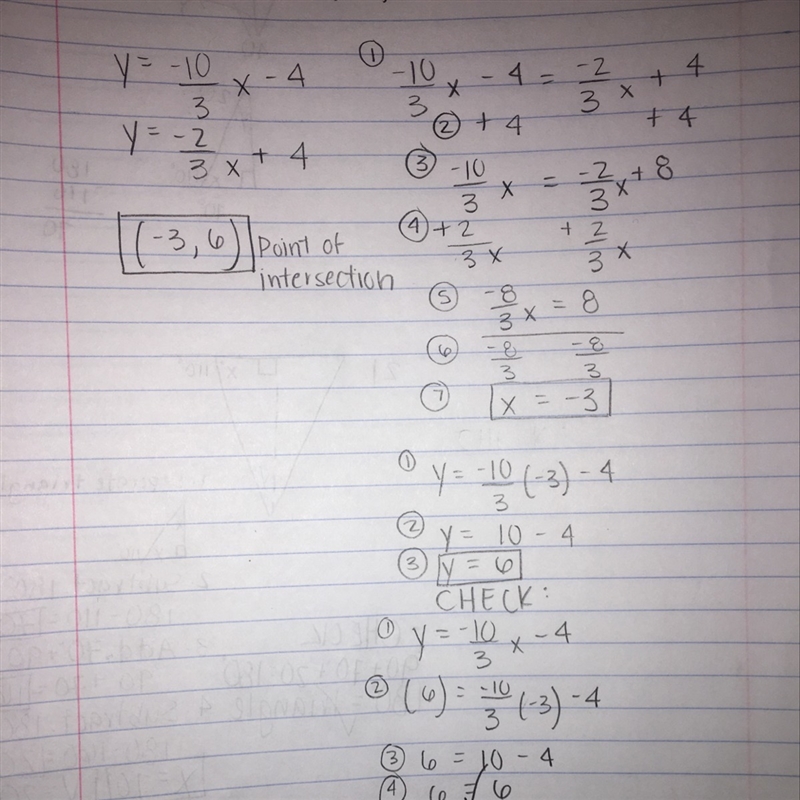 y = -10/3 x - 4
y = -2/3 x + 4
(-3, 6) Point of intersection
① -10/3 x - 4 = -2/3 x + 4
② + 4 + 4
③ -10/3 x = -2/3 x + 8
④ + 2/3 x + 2/3 x
⑤ -8/3 x = 8
⑥ -8/3 -8/3
⑦ x = -3
① y = -10/3 (-3) - 4
② y = 10 - 4
③ y = 6
CHECK:
① y = -10/3 x - 4
② (6) = -10/3 (-3) - 4
③ 6 = 10 - 4
④ 6 = 6